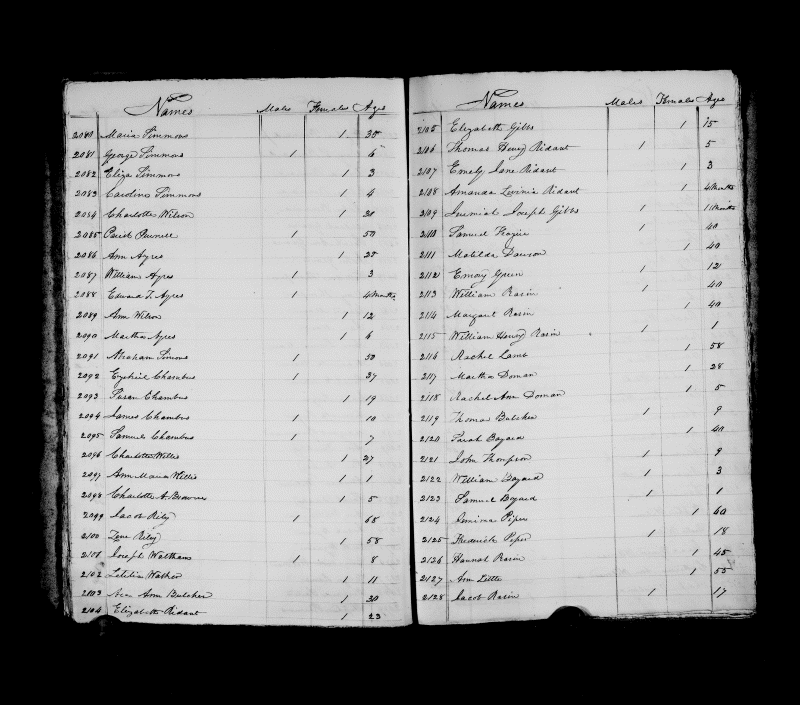 Names Males Females Ages
2080 Maria Simmons 1 30
2081 George Simmons 1 5
2082 Eliza Simmons 1 3
2083 Caroline Simmons 1 4
2084 Charlotte Wilson 1 30
2085 Purnell 1 50
2086 Ann Ayres 1 20
2087 William Ayres 1 3
2088 Edward T. Ayres 1 4 Months
2089 Ann Wilson 1 12
2090 Martha Ayres 1 6
2091 Abraham Simons 1 50
2092 Ezekiel Chambus 1 37
2093 Susan Chambus 1 19
2094 James Chambus 1 10
2095 Samuel Chambus 1 7
2096 Charlotte Willis 1 27
2097 Ann Maria Willis 1 1
2098 Charlotte A. Browne 1 5
2099 Jacob Riley 1 65
2100 Riley 1 58
2101 Joseph Walthans 1 8
2102 Letitia Walker 1 11
2103 Ann Butcher 1 30
2104 Elizabeth Ridaut 1 23
Names Males Females Ages
2105 Elizabeth Gibbs 1 15
2106 Thomas Henry Ridaut 1 5
2107 Emely Jane Ridaut 1 3
2108 Amanda Levinia Ridaut 1 4 Months
2109 Jeremiah Joseph Gibbs 1 11 Months
2110 Samuel Frazier 1 40
2111 Matilda Dawson 1 40
2112 Emory Green 1 12
2113 William Rasin 1 40
2114 Margaret Rasin 1 40
2115 William Henry Rasin 1 1
2116 Rachel Lamb 1 58
2117 Martha Doman 1 28
2118 Rachel Ann Doman 1 5
2119 Thomas Butcher 1 9
2120 Sarah Bayard 1 40
2121 John Thompson 1 9
2122 William Bayard 1 3
2123 Samuel Bayard 1 1
2124 Jemima Piper 1 60
2125 Frederick Piper 1 18
2126 Hannah Rasin 1 45
2127 Ann Little 1 55
2128 Jacob Rasin 1 17